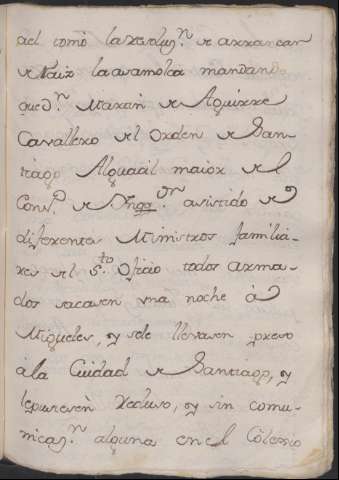 ael tomò la resoluz.ⁿ de arrancar
de raiz la asamblea mandando
que D.ⁿ Martin de Aguirre
Cavallero del Orden de San-
tiago Alguacil maior del
Cons.º de Ynqq.on asistido de
diferentes Ministros familia-
res del S.to Oficio todos arma-
dos sacasen una noche à
Migueles, y se le llevasen preso
à la Ciudad de Santiago, y
le pusiesen recluso, y sin comu-
nicaz.ⁿ alguna en el Colexio